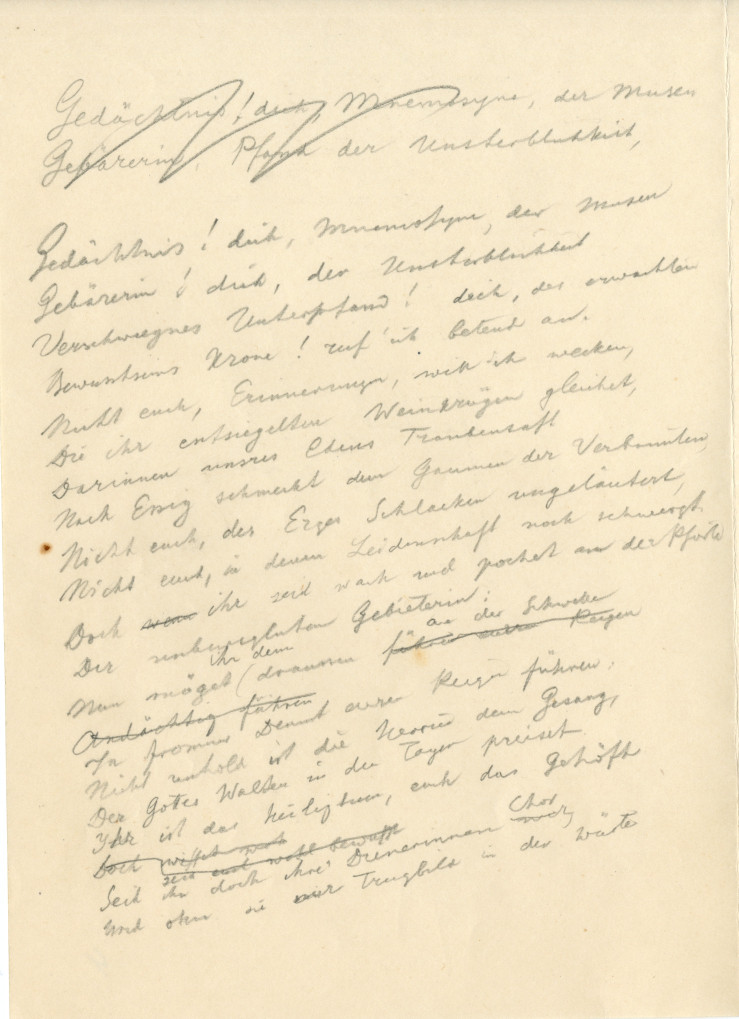 Gedächtnis! dich, Mnemosyne, der Musen
Gebärerin, Pfand der Unsterblichkeit,
Gedächtnis! dich, Mnemosyne, der Musen
Gebärerin! dich, der Unsterblichkeit
Verschwiegnes Unterpfand! dich, des erwachten
Bewusstseins Krone! ruf' ich betend an.
Nicht euch, Erinnerungen, will ich wecken,
Die ihr entsiegelten Weinkrügen gleichet,
Darinnen unsres Edens Traubensaft
Nach Essig schmeckt dem Gaumen der Verbannten,
Nicht euch, des Erzes Schlacken ungeläutert,
Nicht euch, in denen Leidenschaft noch schweigt.
Doch wenn ihr seid wach und pochet an der Pforte
Der unbeweglichen Gebieterin:
ihr denn an der Schwelle
Nun möget (draussen führen euren Reigen
Andächtig führen
In frommer Demut euren Reigen führen.
Nicht unhold ist die Herrin dem Gesang,
Der Gottes Walten in den Tagen preiset.
Ihr ist das Heiligtum, euch das Gehöft
Doch wisset
seid euch wohl bewusst
Chor
Seid ihr doch ihrer Dienerinnen
Und ohne sie nur Trugbild in der Wüste